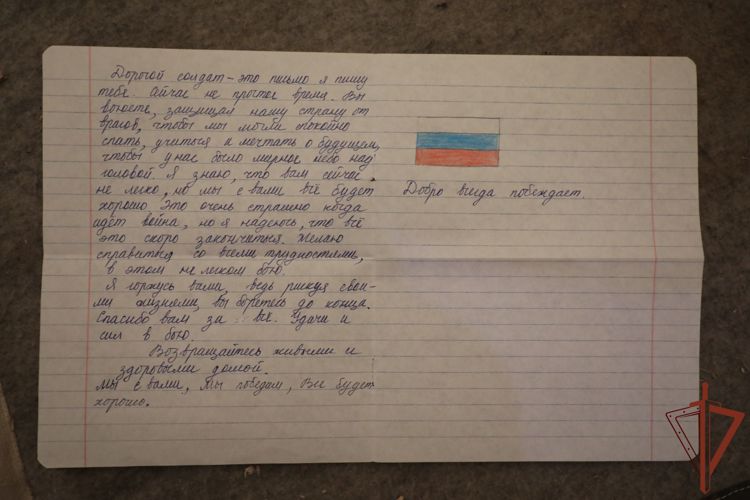 Дорогой солдат – это письмо я пишу
тебе. Айчас не простое время. Вы
воюете, защищая нашу страну от
врагов, чтобы мы могли спокойно
спать, учиться и мечтать о будущем,
чтобы у нас было мирное небо над
головой. Я знаю, что вам сейчас
не легко, но мы с вами всё будет
хорошо. Это очень страшно когда
идёт война, но я надеюсь, что всё
это скоро закончиться. Желаю
справиться со всеми трудностями,
в этом не легком бою.
Я горжусь вами, ведь рискуя свои-
ми жизнями, вы боретесь до конца.
Спасибо вам за всё. Удачи и
сил в бою.
Возвращайтесь живыми и
здоровыми домой.
Мы с вами, Мы победим, Все будет
хорошо.
Добро всегда побеждает.